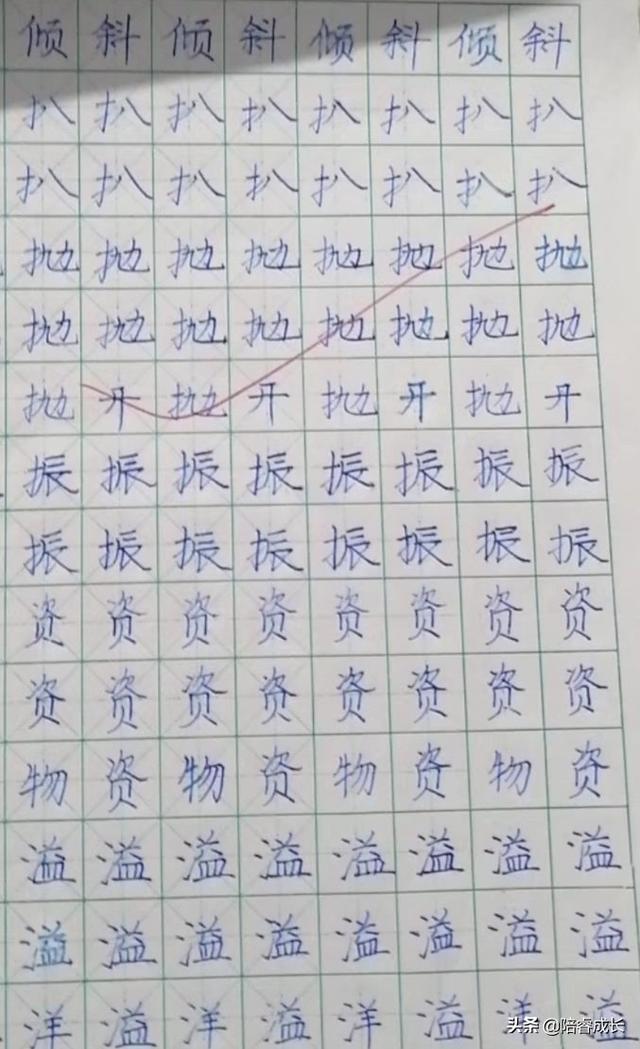 倾斜倾斜倾斜倾斜
扒扒扒扒扒扒扒扒
扒扒扒扒扒扒扒扒
抛抛抛抛抛抛抛抛
抛抛抛抛抛抛抛抛
抛开抛开抛开抛开
振振振振振振振振
振振振振振振振振
资资资资资资资资
资资资资资资资资
物资物资物资物资
溢溢溢溢溢溢溢溢
溢溢溢溢溢溢溢溢
洋溢洋溢洋溢洋溢
头条 @陪睿成长